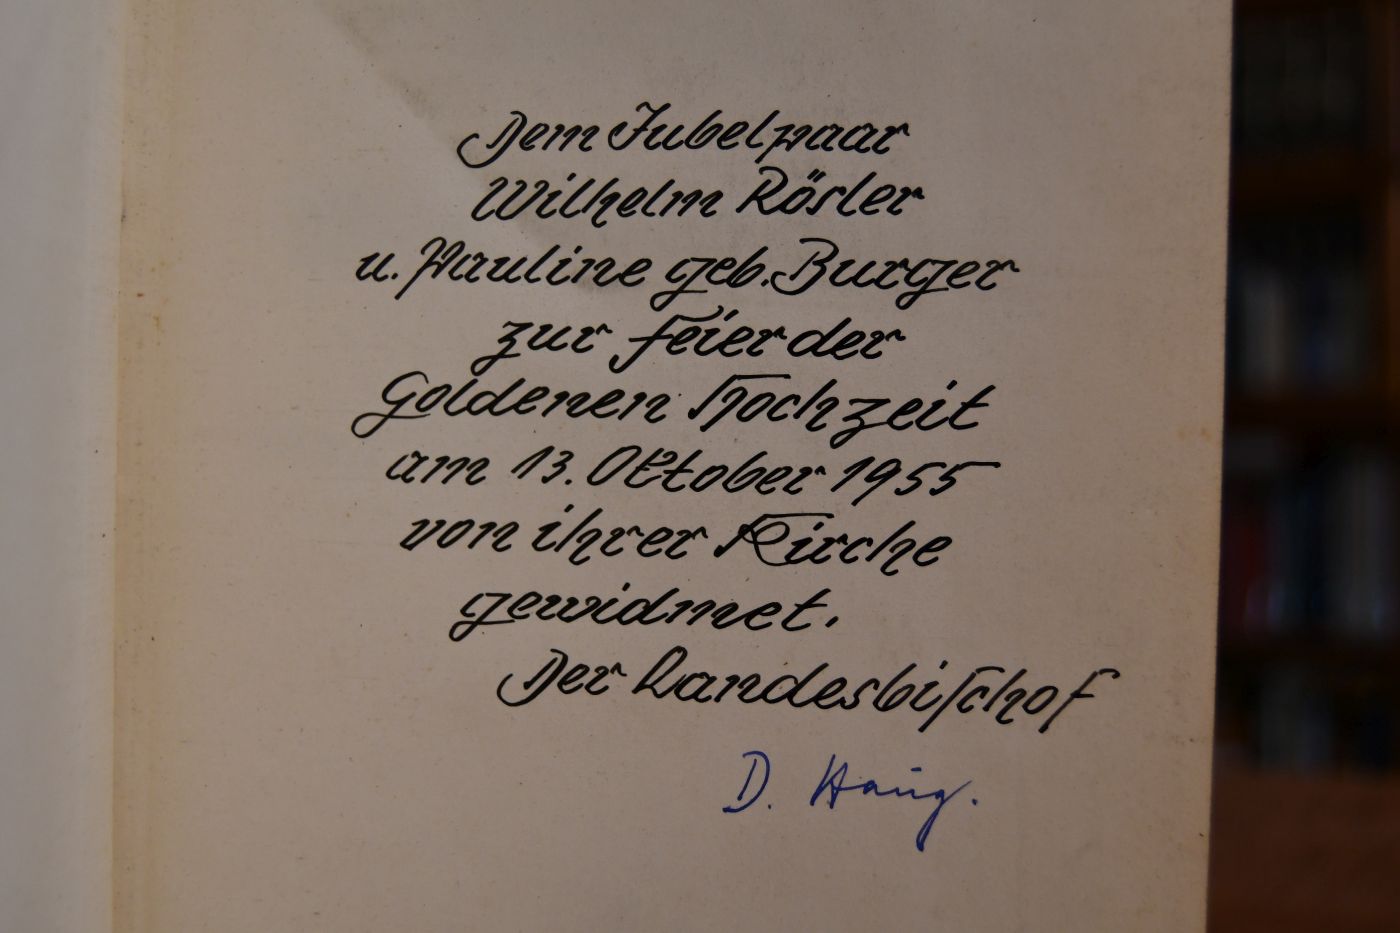 Dem Jubelpaar
Wilhelm Rösler
u. Pauline geb. Burger
zur Feier der
Goldenen Hochzeit
am 13. Oktober 1955
von ihrer Kirche
gewidmet.
Der Landesbischof
D. Haug.